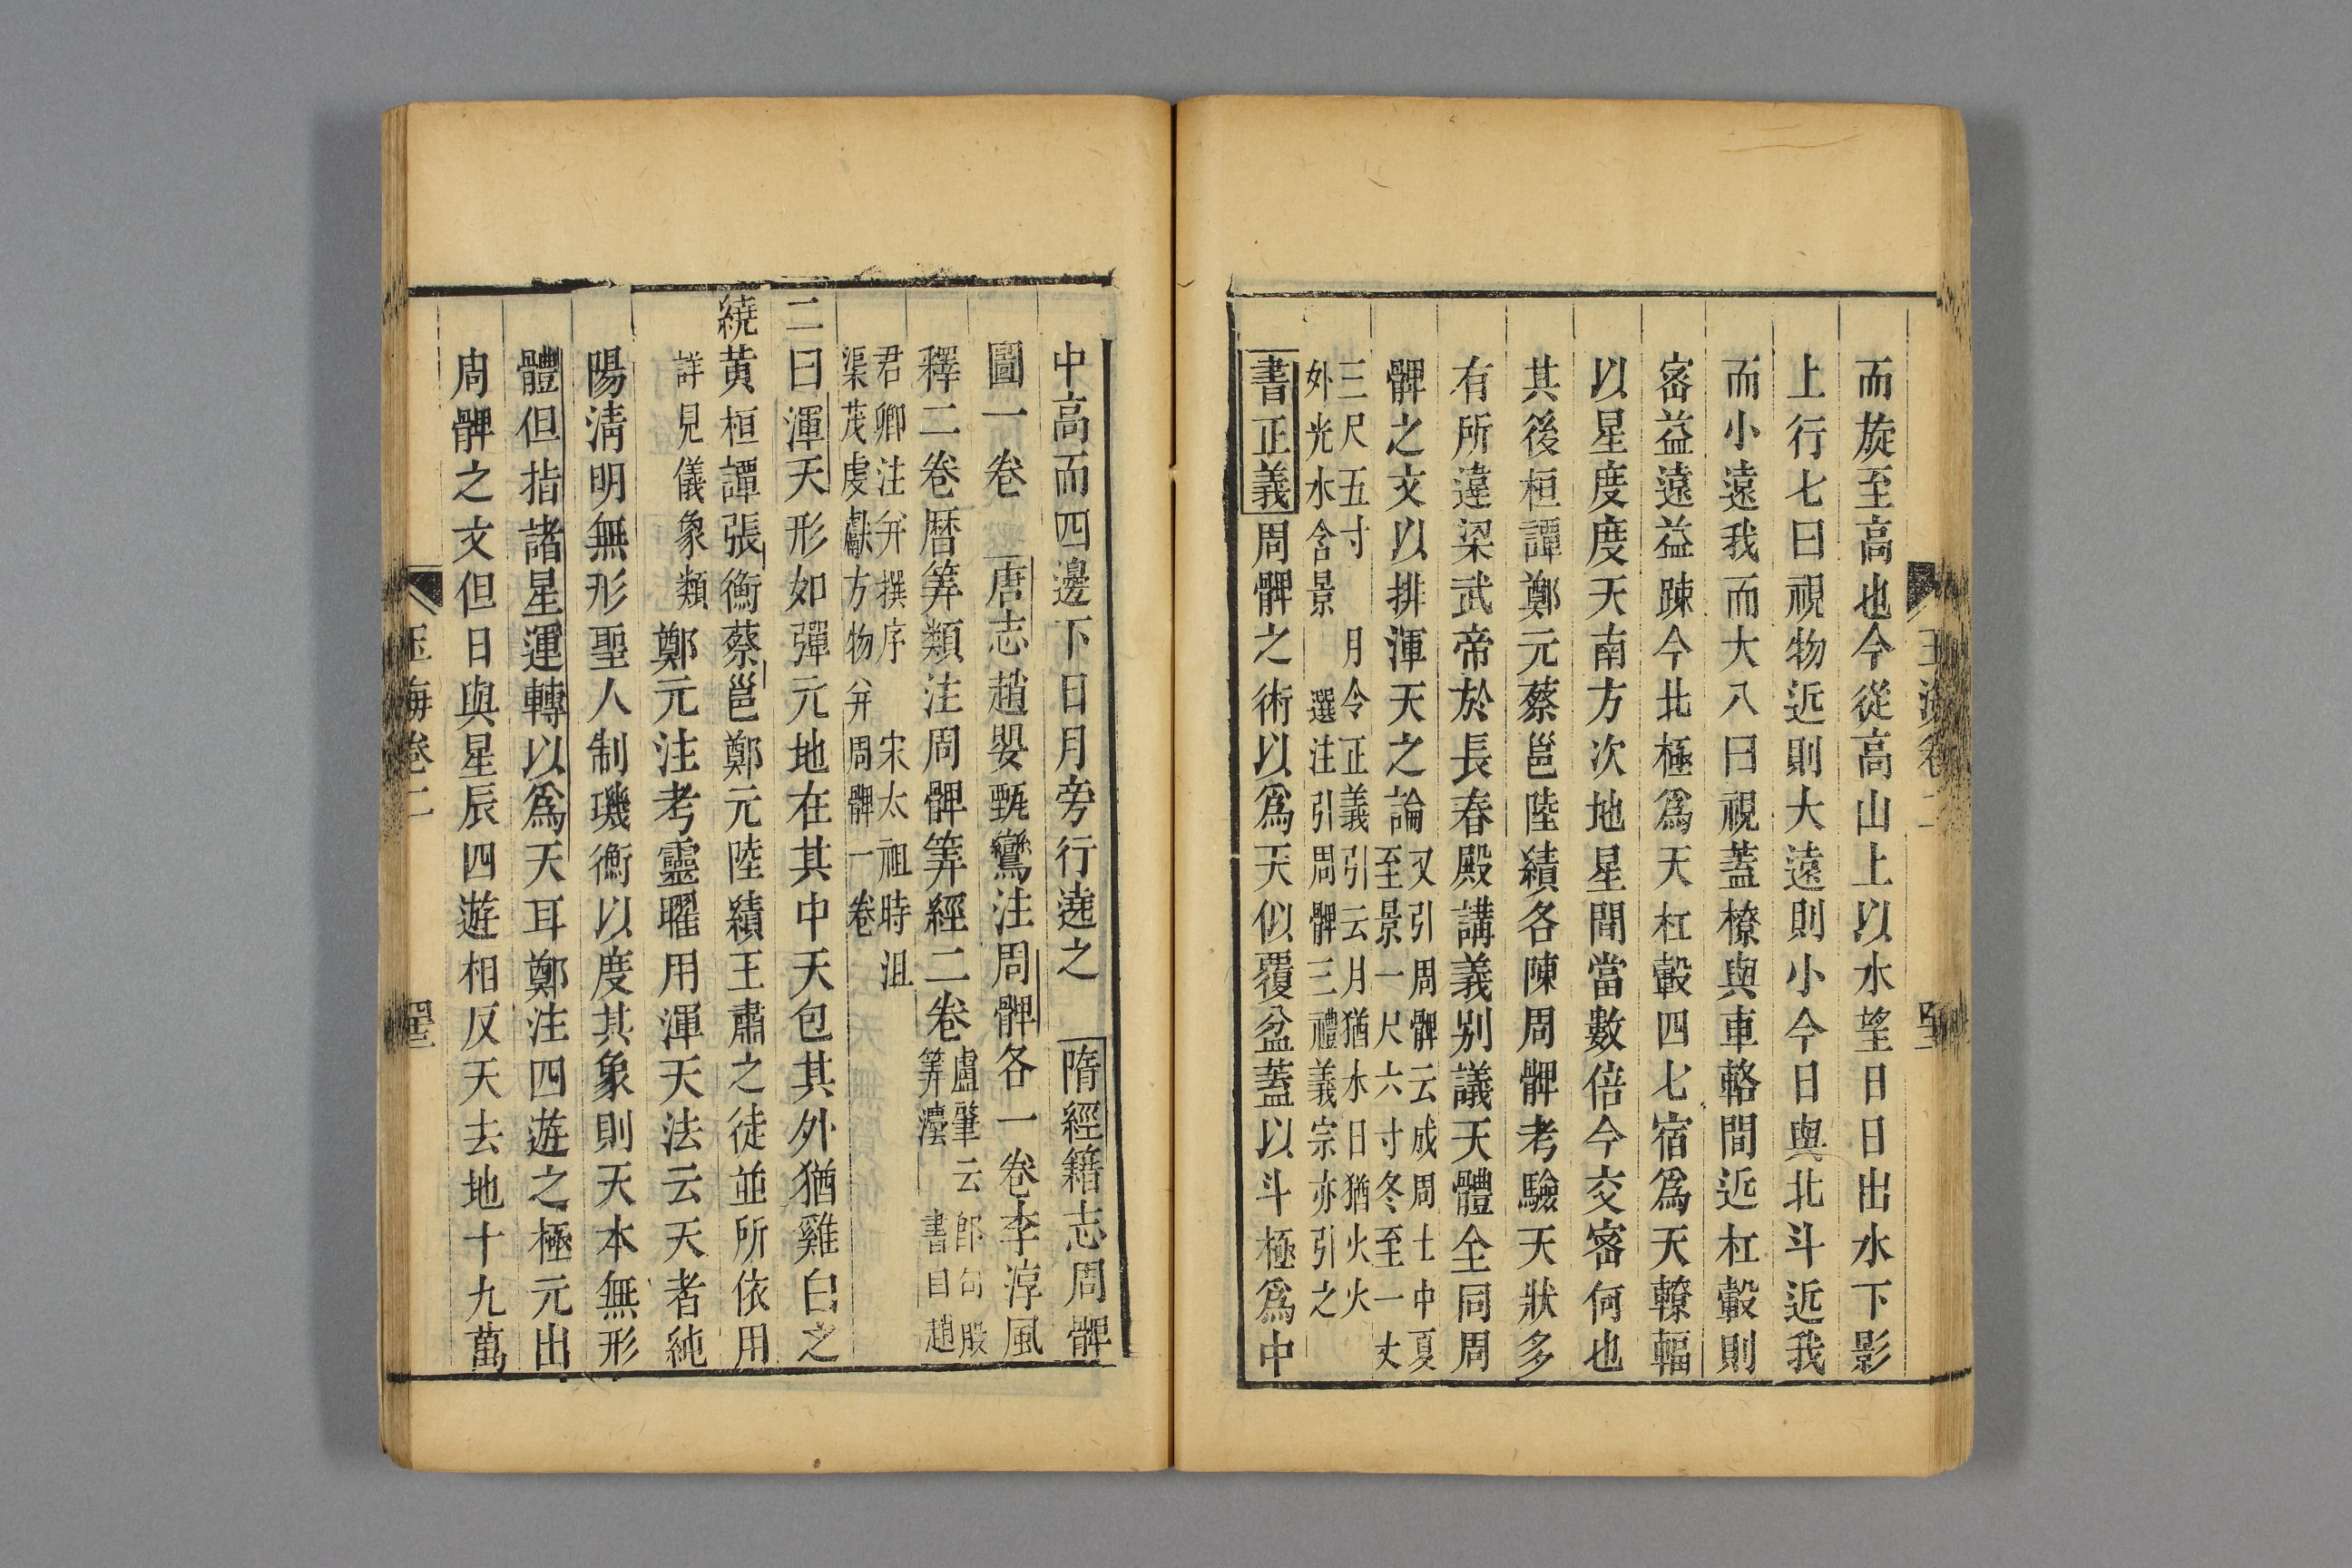 而旋至高也今從高山上以水望日日出水下影
上行七曰視物近則大遠則小今日與北斗近我
而小遠我而大八曰視蓋橑與車輅間近杠轂則
宻益遠益踈今北極爲天杠轂四七宿爲天轑輻
以星度度天南方次地星間當數倍今交宻何也
其後桓譚鄭元蔡邕陸績各陳周髀考驗天狀多
有所違梁武帝於長春殿講義别議天體全同周
髀之文以排渾天之論
又引周髀云成周土中夏
至景一尺六寸冬至一丈
三尺五寸 月令正義引云月猶水日猶火火
外光水含景 選注引周髀三禮義宗亦引之
書正義周髀之術以爲天似覆盆蓋以斗極爲中
玉海卷二
中高而四邊下日月旁行遶之 隋經籍志周髀
圖一卷 唐志趙嬰甄鸞注周髀各一卷李淳風
釋二卷曆筭類注周髀筭經二卷
盧肇云 郎句股
筭灋 書目趙
君卿注幷撰序 宋太祖時沮
渠茂虔獻方物幷周髀一卷
二曰渾天形如彈元地在其中天包其外猶雞白之
繞黃桓譚張衡蔡邕鄭元陸績王肅之徒並所依用
詳見儀象類 鄭元注考靈曜用渾天法云天者純
陽淸明無形聖人制璣衡以度其象則天本無形
體但指諸星運轉以爲天耳鄭注四遊之極元出
周髀之文但日與星辰四遊相反天去地十九萬
玉海卷二